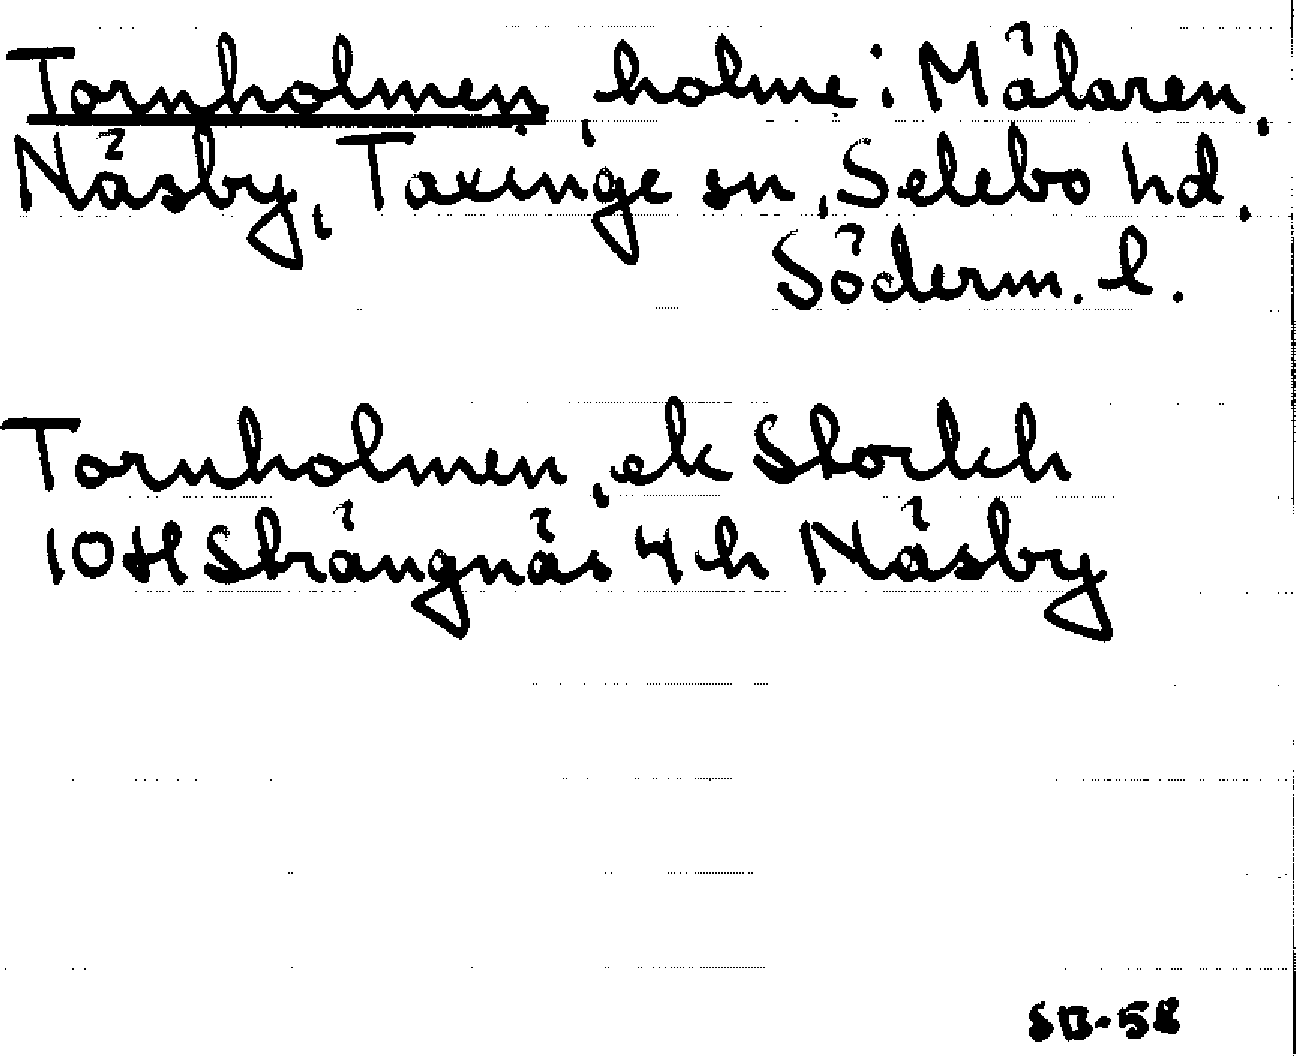 Tornholmen, holme i Mälaren,
Näsby, Taxinge sn, Selebo hd.
Söderm. l.
Tornholmen, ek Storkch
10H Strängnäs 4h Näsby
SB-58